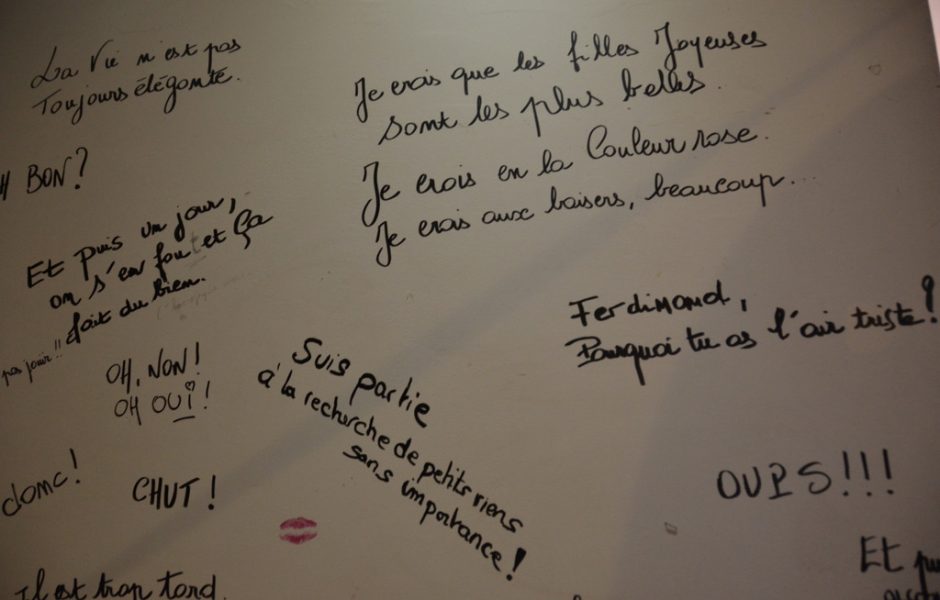 La Vie n'est pas
Toujours élégante.
H BON?
Et puis un jour,
on s'en fout et ça
fait du bien.
pas jouir!!
OH, NON!
OH OUI!
donc!
CHUT!
Il est trop tord
Je crois que les filles Joyeuses
sont les plus belles.
Je crois en la Couleur rose.
Je crois aux baisers, beaucoup...
Suis partie
à la recherche de petits riens
sans importance!
Ferdinand,
Pourquoi tu as l'air triste?
OUPS!!!
Et pu